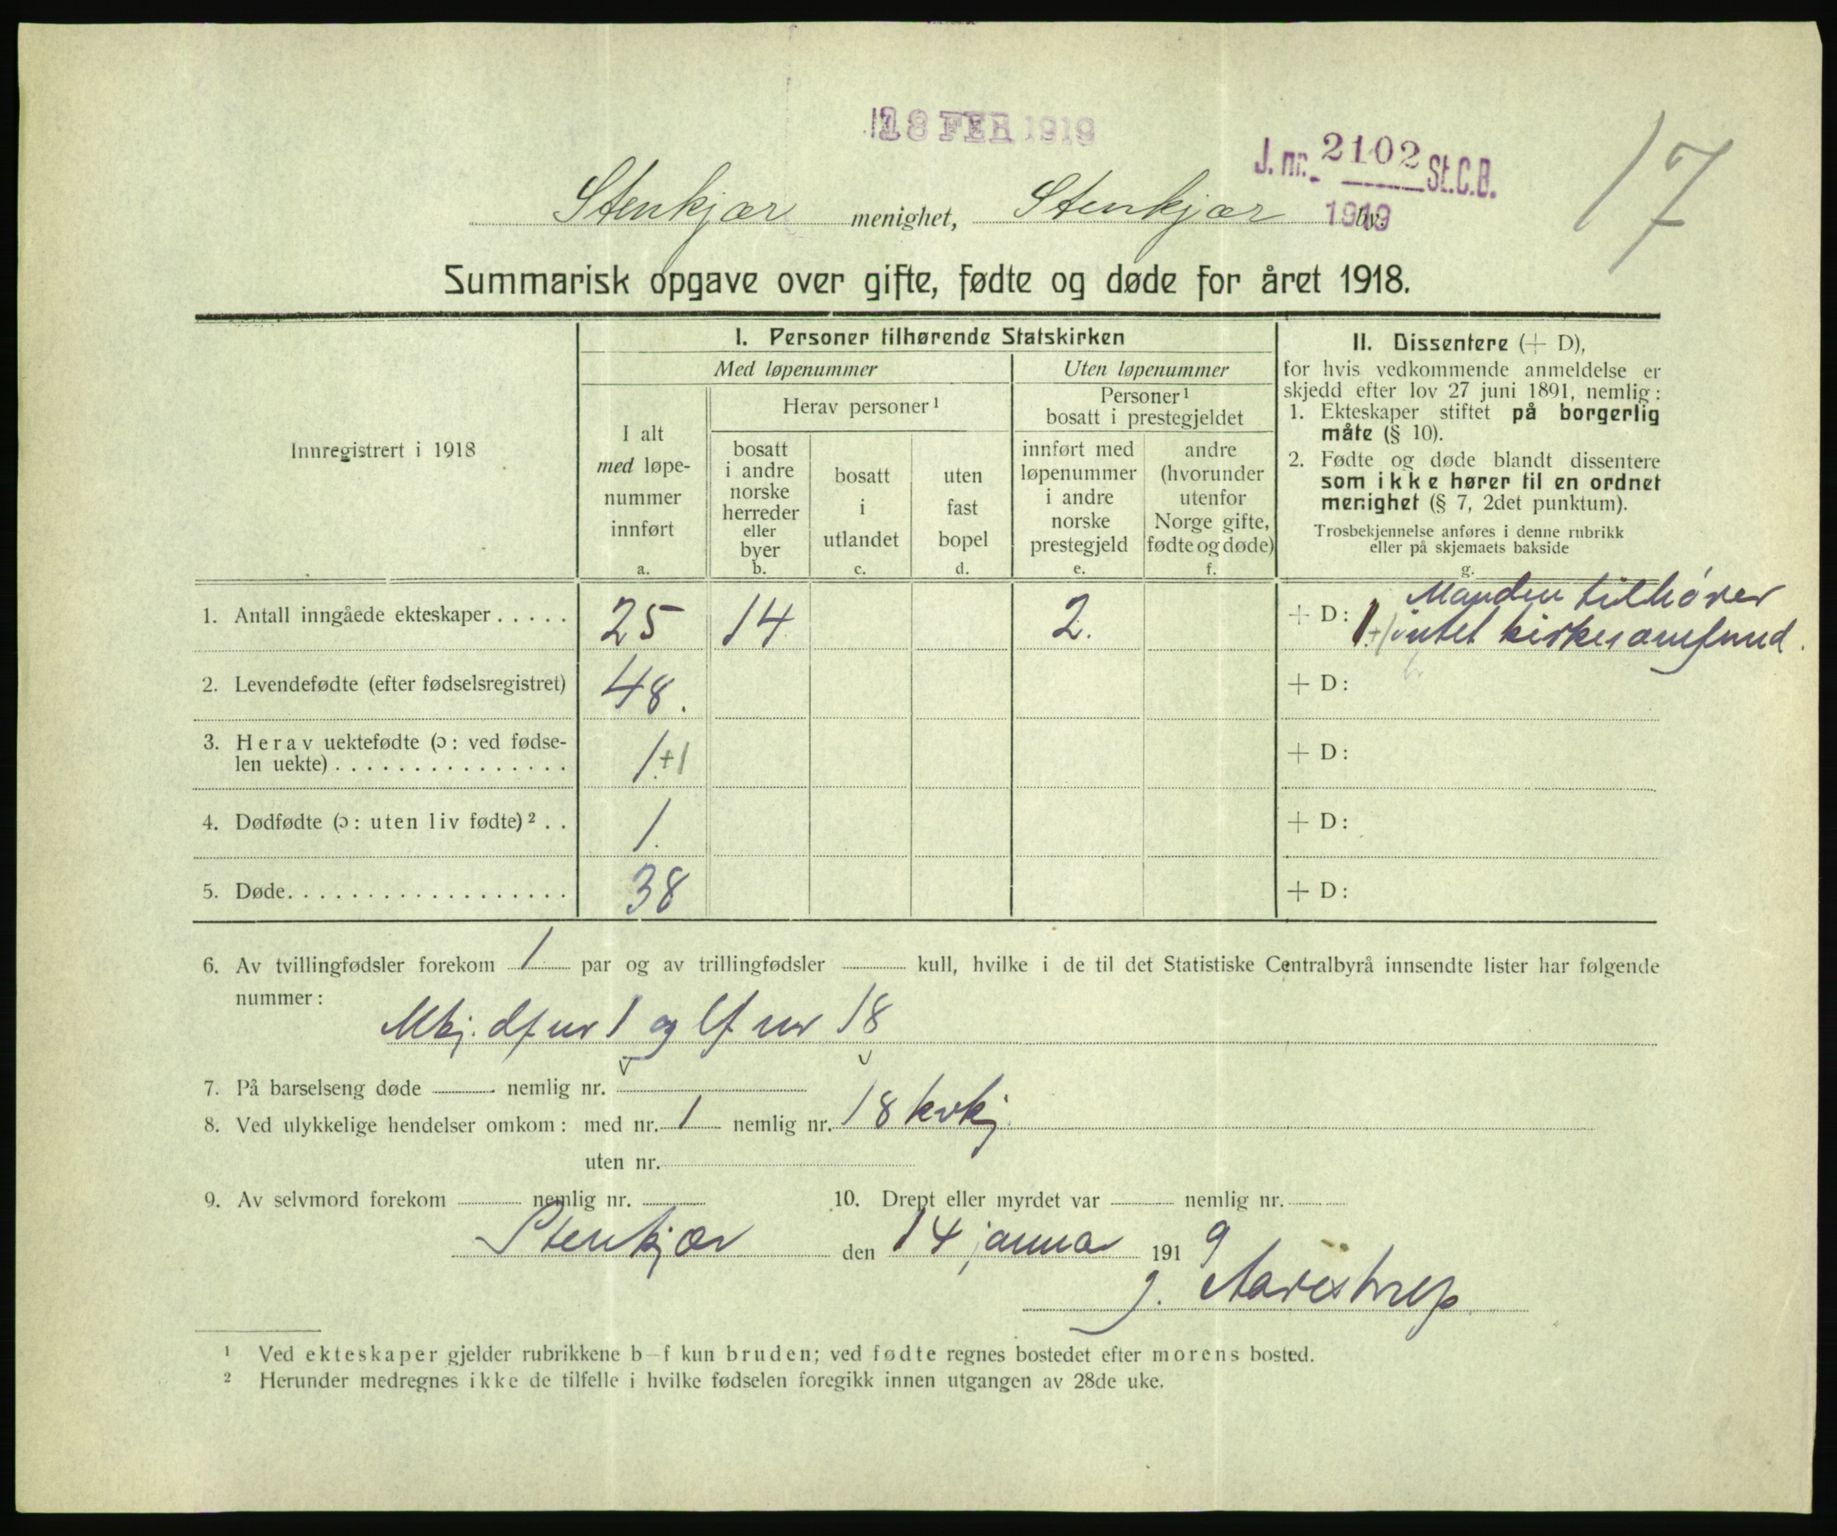 18 FEB 1919
J. nr. 2102 St.C.B.
1919
17
Stenkjær menighet, Stenkjær by.
Summarisk opgave over gifte, fødte og døde for året 1918.
Innregistrert i 1918
I. Personer tilhørende Statskirken
Med løpenummer
Uten løpenummer
I alt
med løpe-
nummer
innført
a.
Herav personer ¹
bosatt
i andre
norske
herreder
eller
byer
b.
bosatt
i
utlandet
c.
uten
fast
bopel
d.
Personer ¹
bosatt i prestegjeldet
innført med
løpenummer
i andre
norske
prestegjeld
e.
andre
(hvorunder
utenfor
Norge gifte,
fødte og døde)
f.
II. Dissentere (+ D),
for hvis vedkommende anmeldelse er
skjedd efter lov 27 juni 1891, nemlig:
1. Ekteskaper stiftet på borgerlig
måte (§ 10).
2. Fødte og døde blandt dissentere
som ikke hører til en ordnet
menighet (§ 7, 2det punktum).
Trosbekjennelse anføres i denne rubrikk
eller på skjemaets bakside
g.
1. Antall inngåede ekteskaper . . . . . 25 14 2. + D: 1 Manden tilhører
intet kirkesamfund.
2. Levendefødte (efter fødselsregistret) 48. + D:
3. Herav uektefødte (ɔ: ved fødse-
len uekte) . . . . . . . . . . . . . . . 1.+1 + D:
4. Dødfødte (ɔ: uten liv fødte) ² . . 1. + D:
5. Døde. . . . . . . . . . . . . . . . . . 38 + D:
6. Av tvillingfødsler forekom 1 par og av trillingfødsler kull, hvilke i de til det Statistiske Centralbyrå innsendte lister har følgende
nummer:
Mkj. df nr 1 og lf nr 18
7. På barselseng døde nemlig nr.
8. Ved ulykkelige hendelser omkom: med nr. 1 nemlig nr. 18 kvkj.
uten nr.
9. Av selvmord forekom nemlig nr. 10. Drept eller myrdet var nemlig nr.
Stenkjær den 14 januar 1919
J. Aarestrup
¹ Ved ekteskaper gjelder rubrikkene b—f kun bruden; ved fødte regnes bostedet efter morens bosted.
² Herunder medregnes ikke de tilfelle i hvilke fødselen foregikk innen utgangen av 28de uke.